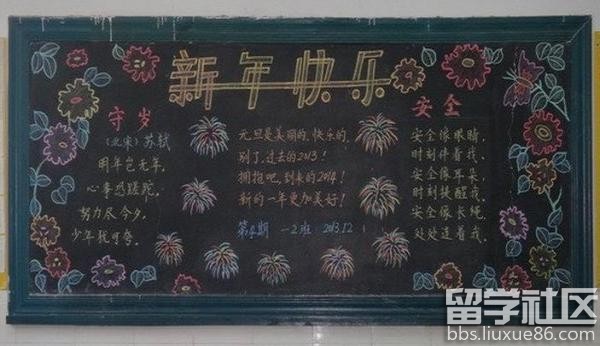 新年快乐
守岁
(北宋) 苏轼
明年岂无年,
心事恐蹉跎,
努力尽今夕,
少年犹可夸.
元旦是美丽的,快乐的,
别了,过去的2013!
拥抱吧,到来的2014!
新的一年更加美好!
第4期 一2班 2013.12
安全
安全像眼睛,
时刻伴着我.
安全像耳朵,
时刻提醒我.
安全像长绳,
处处连着我.
留学社区
bbs.liuxue86.com